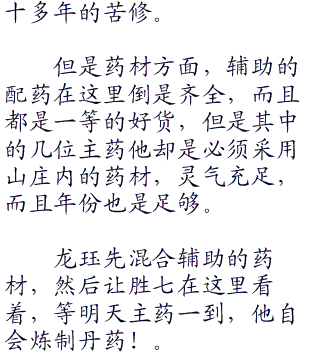 十多年的苦修。
但是药材方面，辅助的
配药在这里倒是齐全，而且
都是一等的好货，但是其中
的几位主药他却是必须采用
山庄内的药材，灵气充足，
而且年份也是足够。
龙珏先混合辅助的药
材，然后让胜七在这里看
着，等明天主药一到，他自
会炼制丹药！。